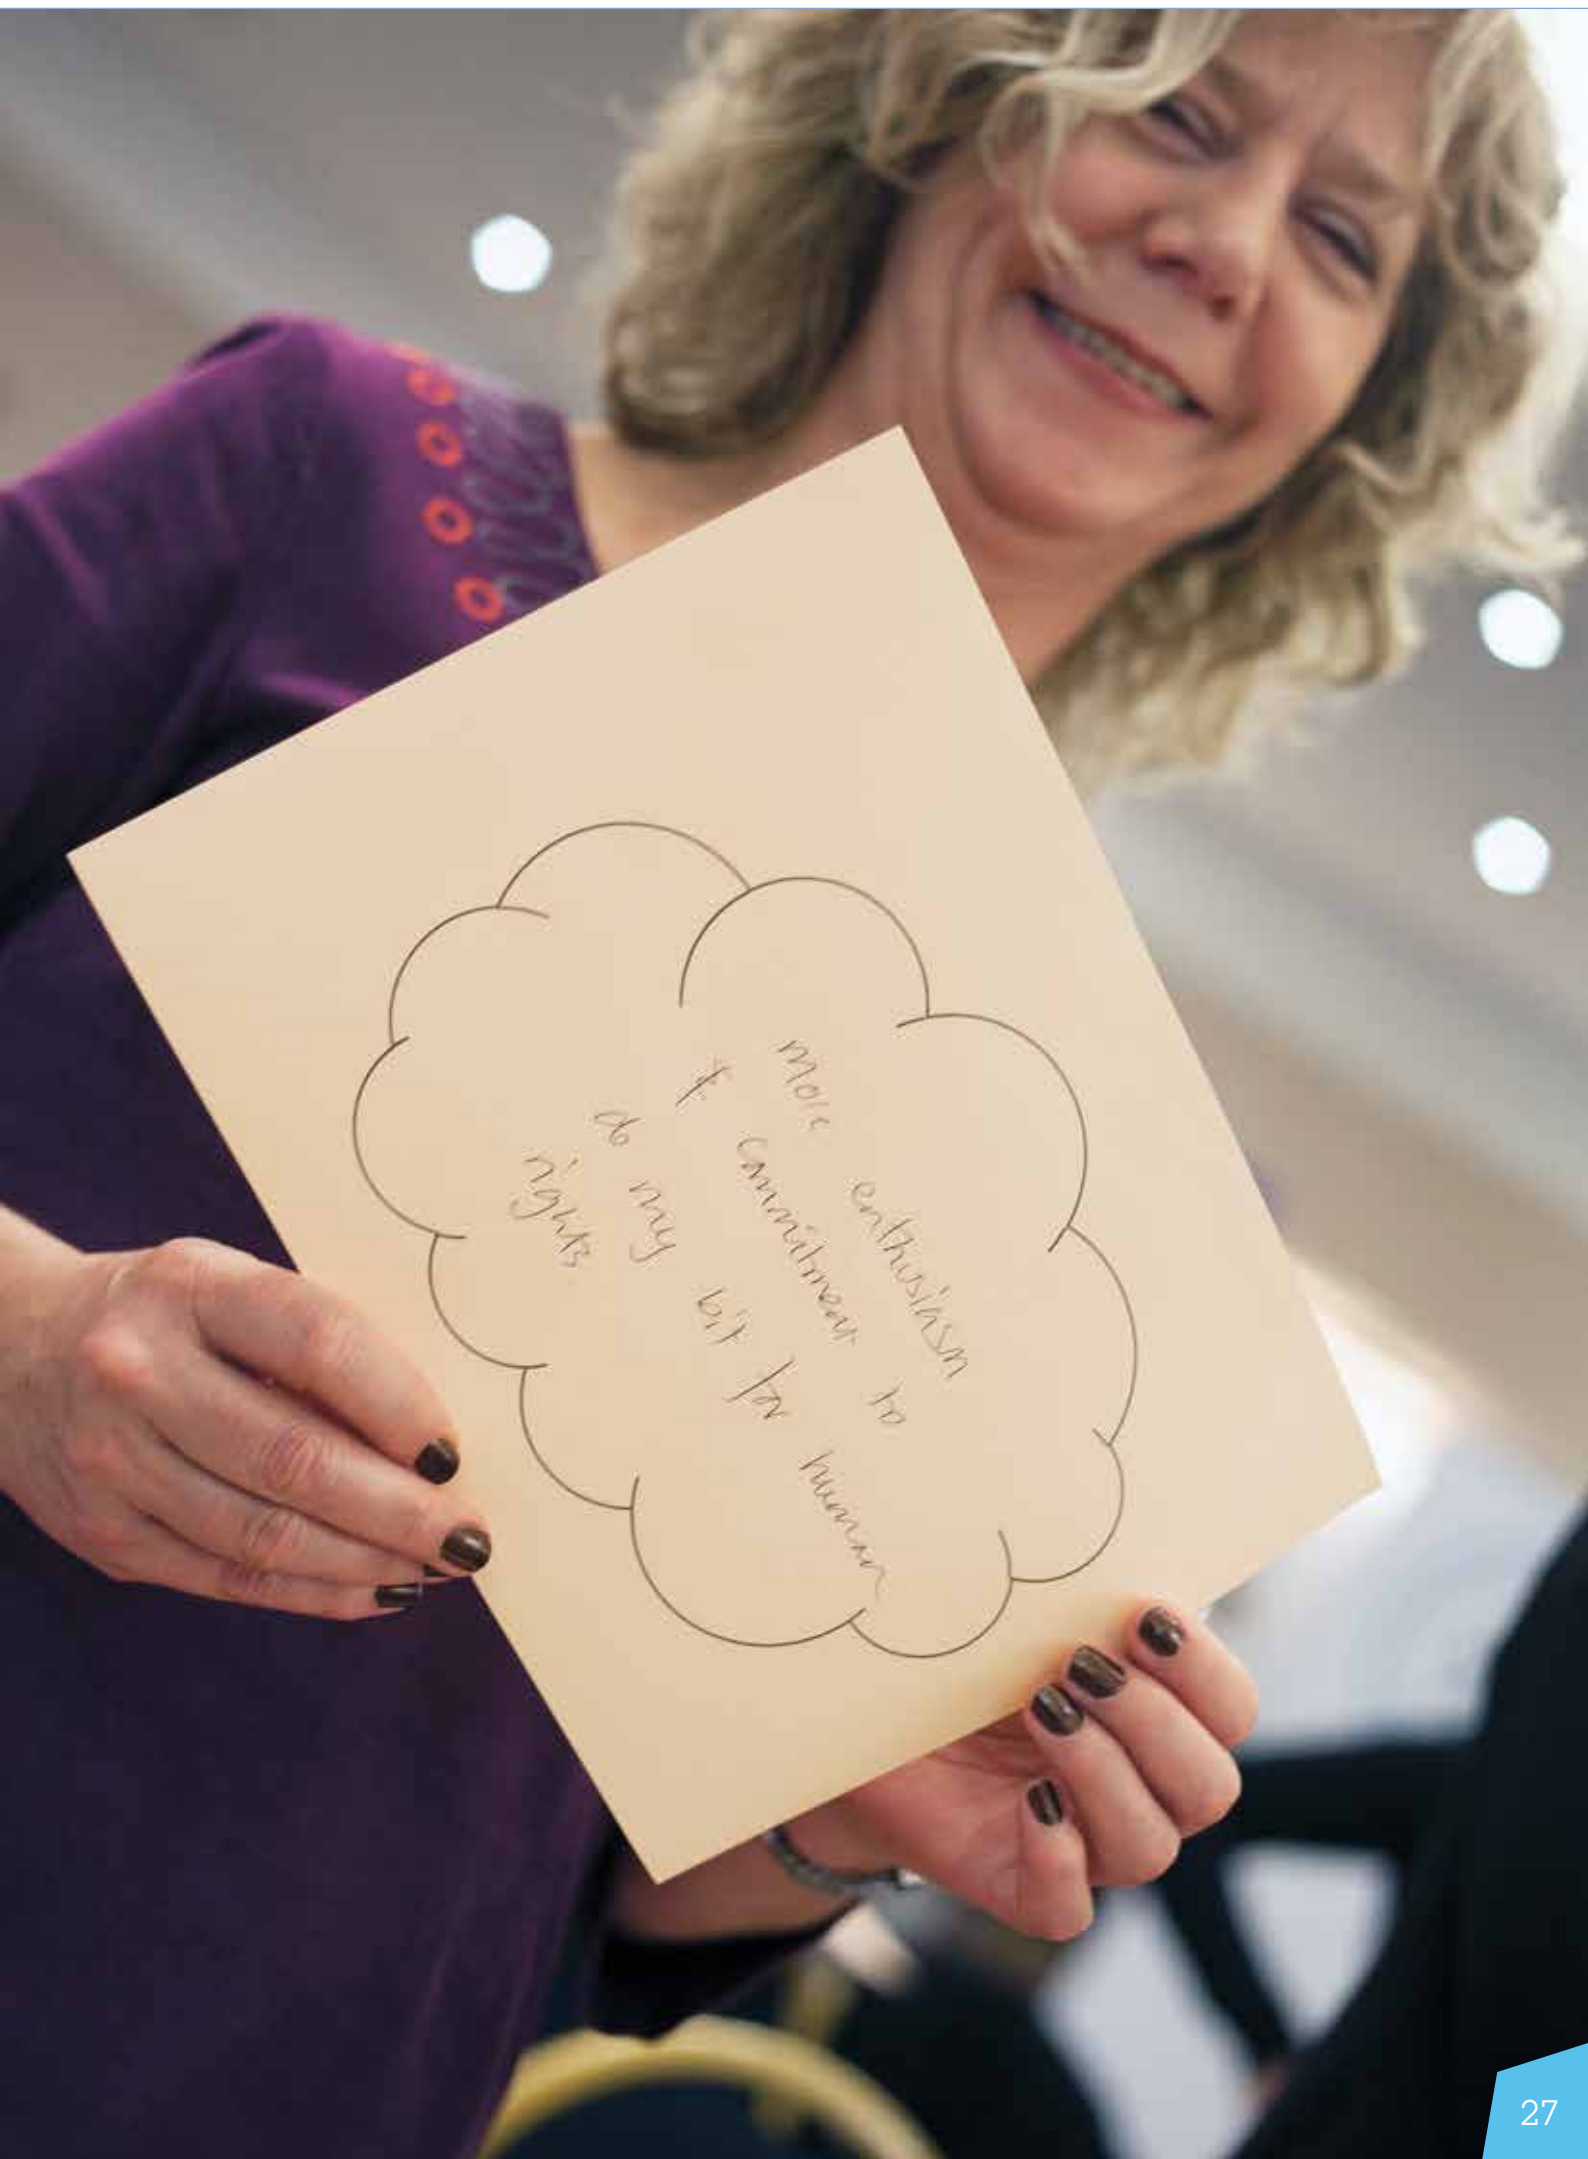 more enthusiasm
& commitment to
do my bit for human
rights
27